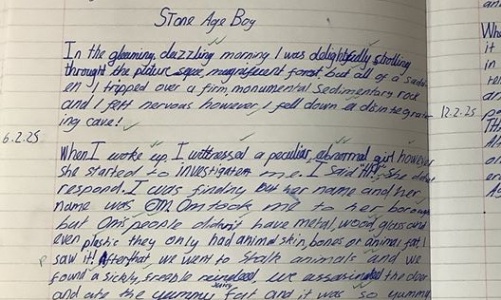 Stone Age Boy
In the gleaming, dazzling morning I was delightfully strolling
throught the picture sque, magnificent forest, but all of a sudd
en I tripped over a firm, monumental Sedimentary rock
and I felt nervous however, I fell down a disintegrat
ing cave!
12.2.25
6.2.25
When I woke up, I witnessed a peculiar, abnormal girl however
she started to investigate me. I said "Hi". She didn't
respond. I was finding out her name and her
name was OM. Om took me to her
but Om's people didn't have metal, wood, glass and
even plastic they only had animal skin, bones or animal fat, I
saw it! After that we went to stalk animals and we
found a sickly, freeble reindeer, we the deer
and ate the yummy fat and it was so yummy